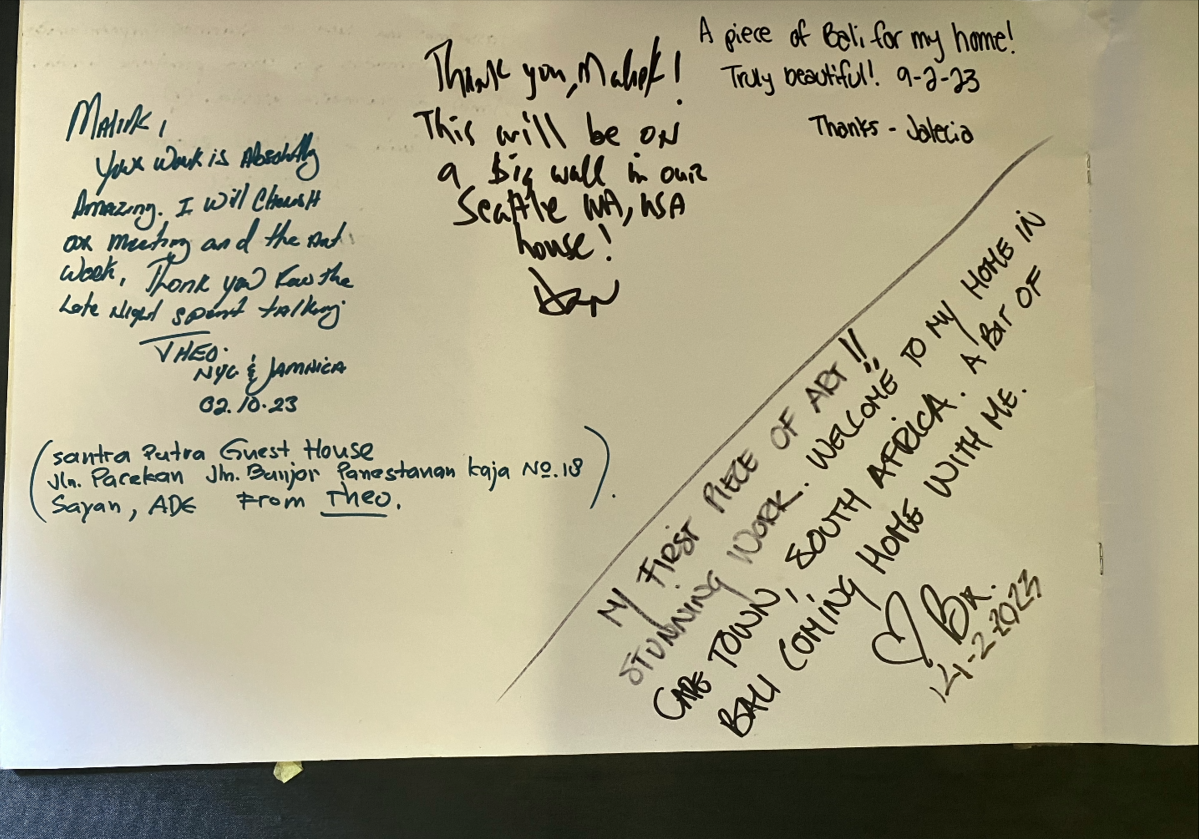 Malik,
Your work is Absolutly
Amazing. I will Cherish
our meeting and the Art
Work, Thank you For the
Late Night spent talking
THEO.
NYC & JAMAICA
02.10.23
(santra Putra Guest House
Jln. Pacekan Jln. Banjar Panestanan Kaja No.18
Sayan, ADE From Theo.)
Thank you, Malik!
This will be on
a big wall in our
Seattle WA, USA
house!
A piece of Bali for my home!
Truly beautiful! 9-2-23
Thanks - Jalecia
MY FIRST PIECE OF ART!!
STUNNING WORK. WELCOME TO MY HOME IN
CAPE TOWN, SOUTH AFRICA. A BIT OF
BALI COMING HOME WITH ME.
♡ Bx.
14-2-2023